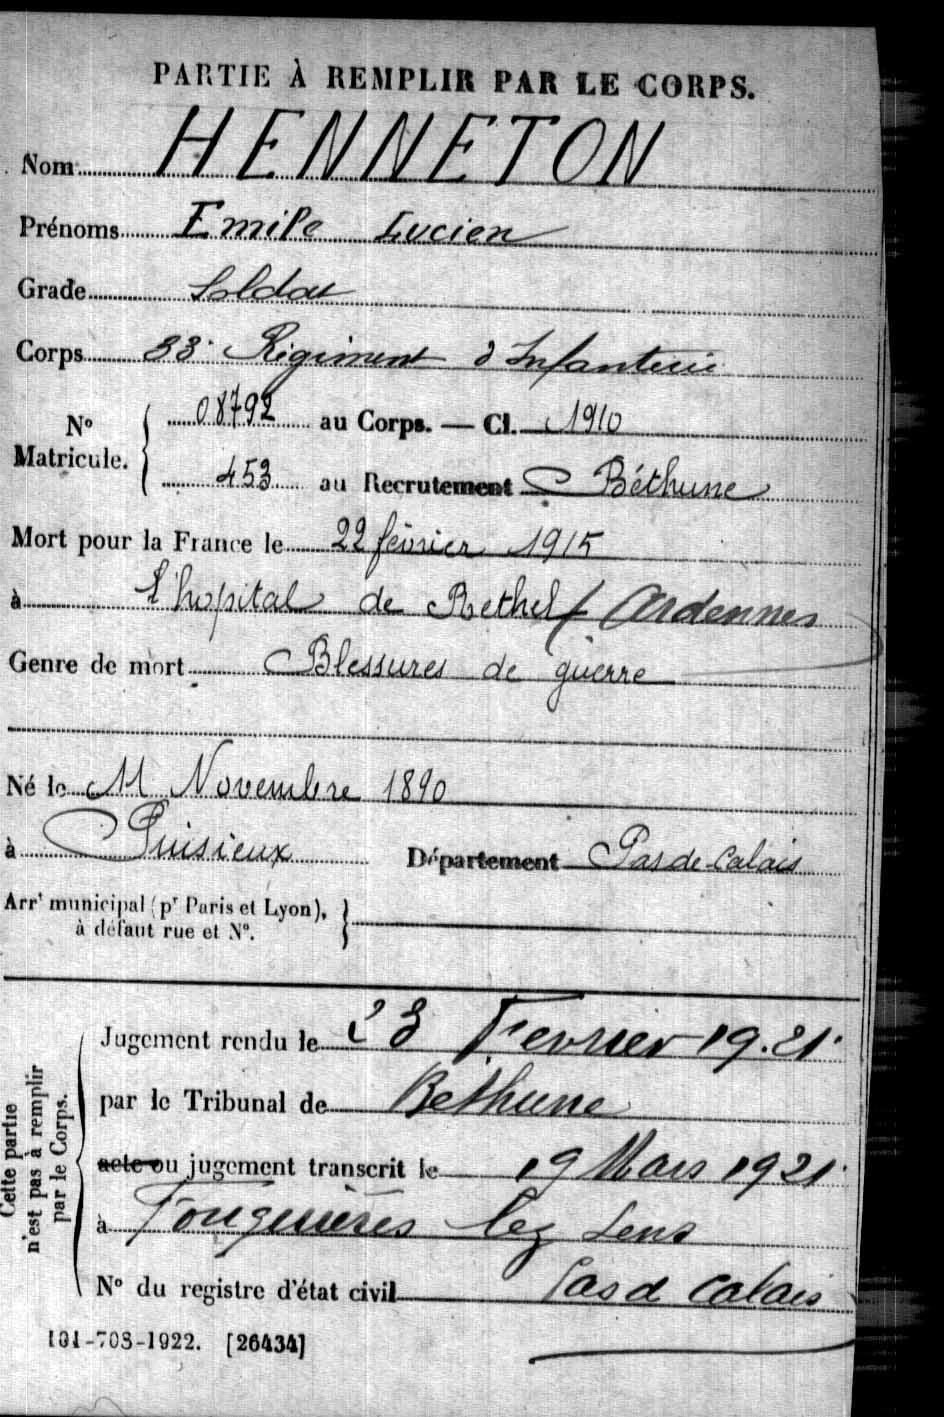 PARTIE À REMPLIR PAR LE CORPS.
Nom HENNETON
Prénoms Emile Lucien
Grade Soldat
Corps 33e Régiment d'Infanterie
No Matricule. { 08792 au Corps. — Cl. 1910
453 au Recrutement Béthune
Mort pour la France le 22 février 1915
à l'hopital de Rethel / Ardennes
Genre de mort Blessures de guerre
Né le 11 Novembre 1890
à Puisieux Département Pas de Calais
Arrt municipal (pr Paris et Lyon), }
à défaut rue et No.
Cette partie
n'est pas à remplir
par le Corps.
Jugement rendu le 23 Fevrier 1921.
par le Tribunal de Béthune
acte ou jugement transcrit le 19 Mars 1921.
à Fouquières lez Lens
No du registre d'état civil Pas d Calais
101-708-1922. [26434]